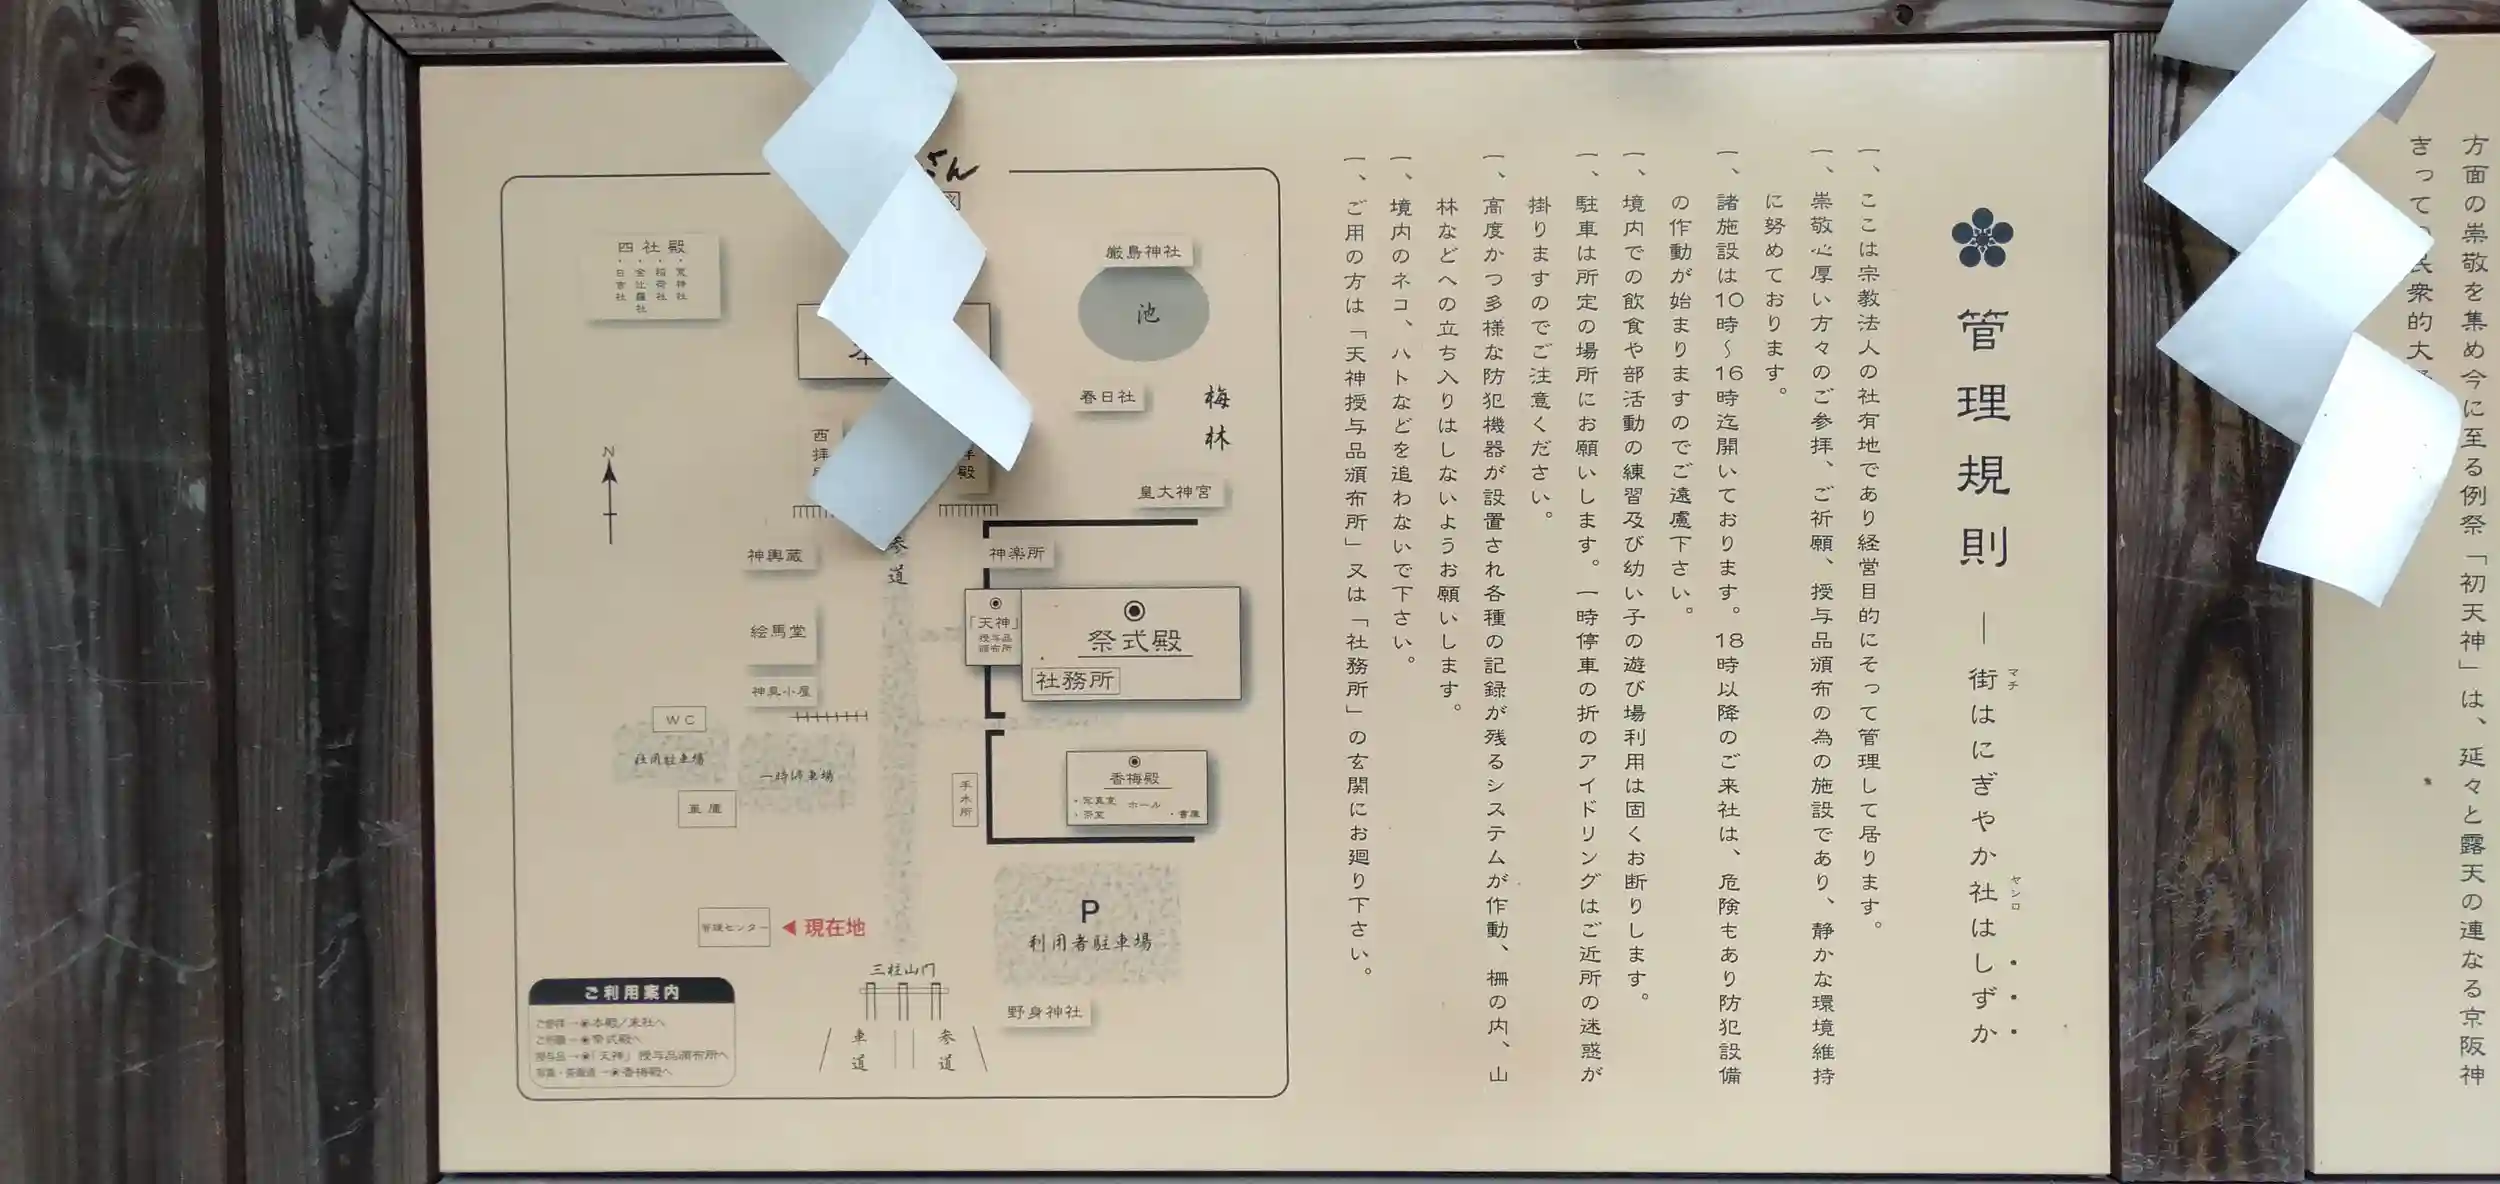 方面の崇敬を集め今に至る例祭「初天神」は、延々と露天の連なる京阪神
きっての民衆的大
管理規則 ― 街はにぎやか社はしずか
マチ
ヤシロ
一、ここは宗教法人の社有地であり経営目的にそって管理して居ります。
一、崇敬心厚い方々のご参拝、ご祈願、授与品頒布の為の施設であり、静かな環境維持
に努めております。
一、諸施設は10時〜16時迄開いております。18時以降のご来社は、危険もあり防犯設備
の作動が始まりますのでご遠慮下さい。
一、境内での飲食や部活動の練習及び幼い子の遊び場利用は固くお断りします。
一、駐車は所定の場所にお願いします。一時停車の折のアイドリングはご近所の迷惑が
掛りますのでご注意ください。
一、高度かつ多様な防犯機器が設置され各種の記録が残るシステムが作動、柵の内、山
林などへの立ち入りはしないようお願いします。
一、境内のネコ、ハトなどを追わないで下さい。
一、ご用の方は「天神授与品頒布所」又は「社務所」の玄関にお廻り下さい。
図
四社殿
荒神社
稲荷社
金比羅社
日吉社
厳島神社
池
春日社
梅林
皇大神宮
本
西拝
拝殿
N
参道
神輿蔵
神楽所
絵馬堂
「天神」
授与品
頒布所
祭式殿
社務所
神具小屋
WC
社用駐車場
一時停車場
車庫
手水所
香梅殿
・写真室
ホール
・茶室
・書庫
管理センター
現在地
P
利用者駐車場
三柱山門
野身神社
車道
参道
ご利用案内
ご参拝→◉本殿/末社へ
ご祈願→◉祭式殿へ
授与品→◉「天神」授与品頒布所へ
→◉香梅殿へ